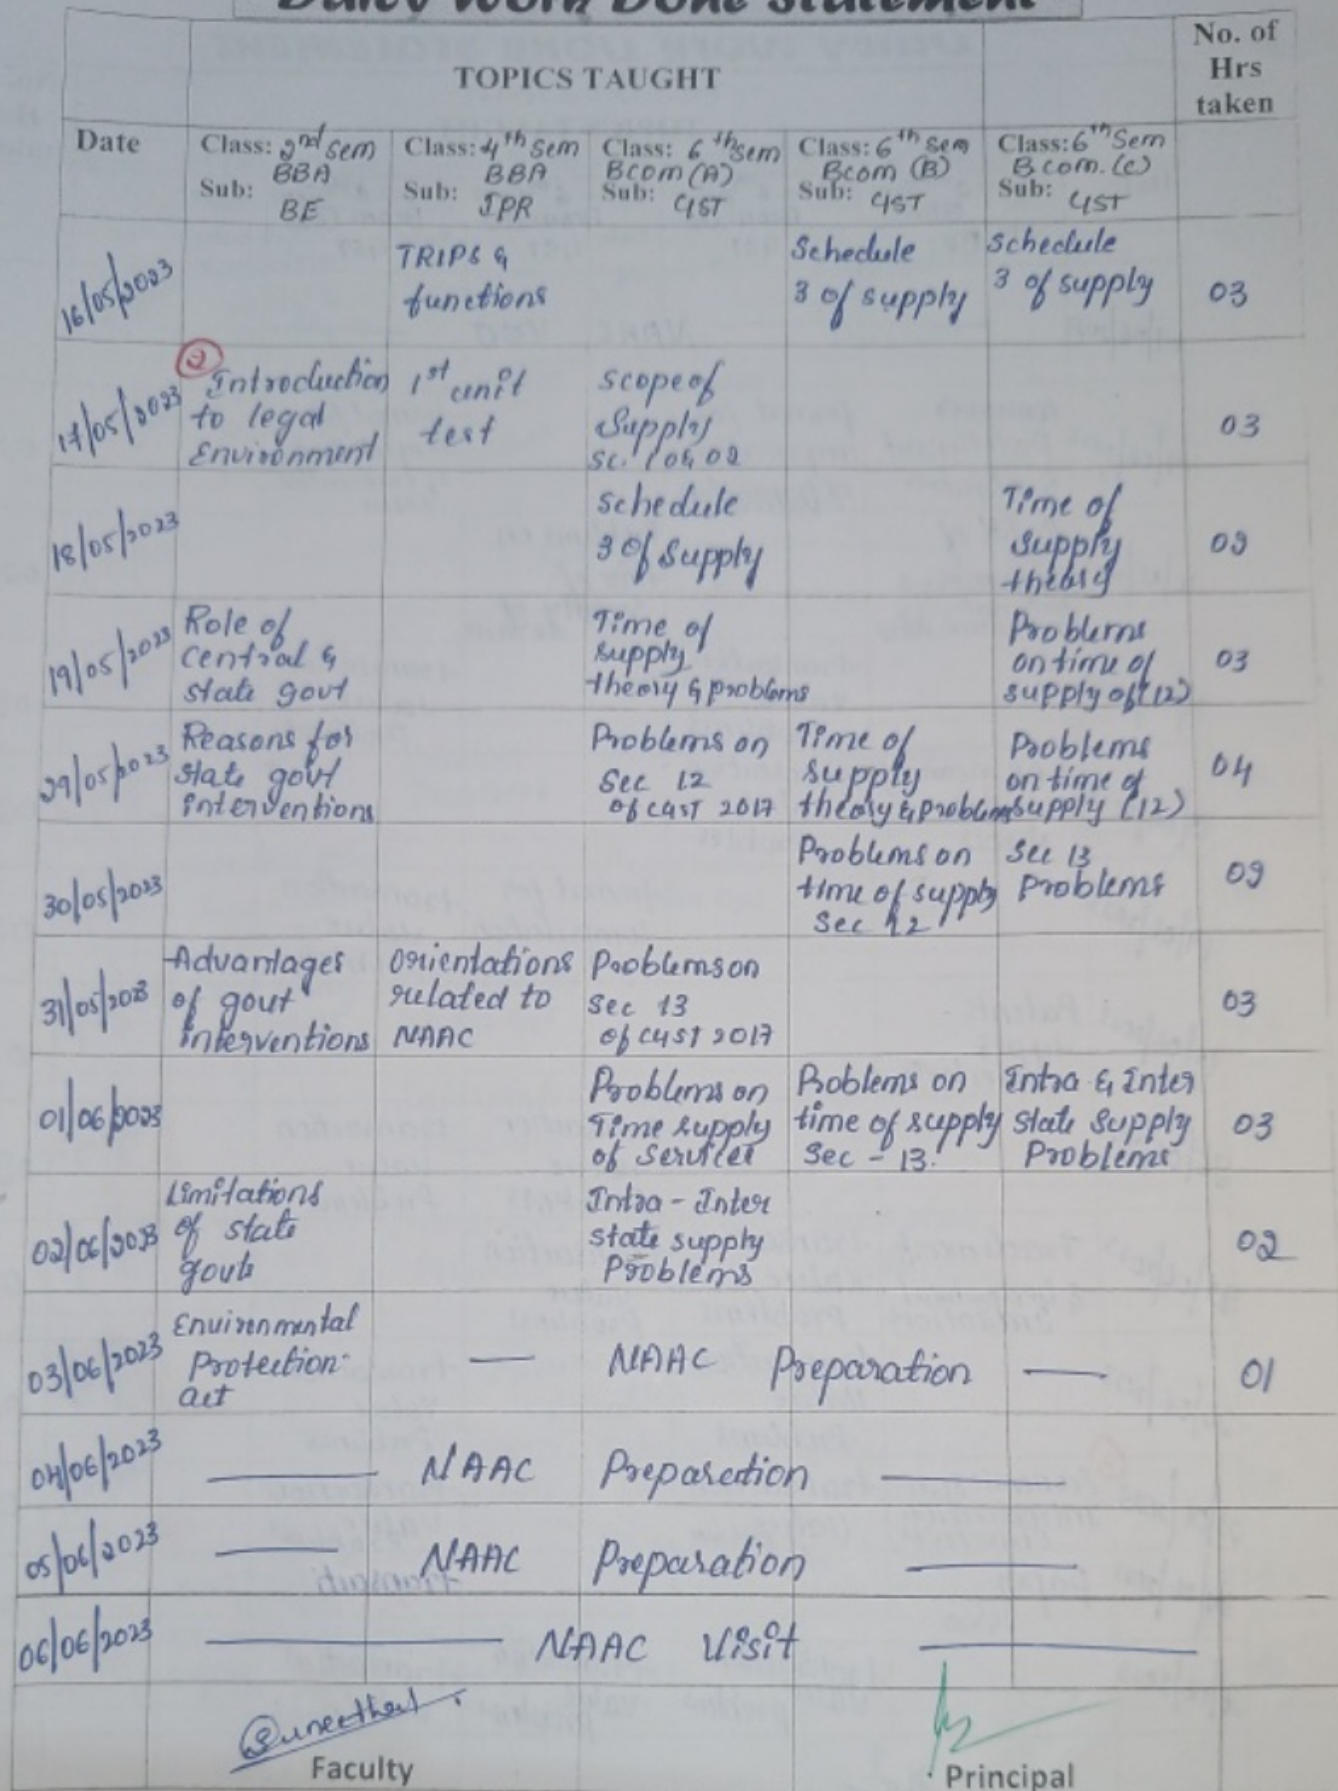 Daily Work Done Statement
TOPICS TAUGHT
No. of
Hrs
taken
Date
Class: 2nd Sem
BBA
Sub:
BE
Class: 4th Sem
BBA
Sub: IPR
Class: 6th Sem
Bcom (A)
Sub: GST
Class: 6th Sem
Bcom (B)
Sub: GST
Class: 6th Sem
Bcom. (C)
Sub: GST
16/05/2023
TRIPS &
functions
Schedule
3 of supply
Schedule
3 of supply
03
17/05/2023
2
Introduction
to legal
Environment
1st unit
test
Scope of
Supply
Sc. 1 & 02
03
18/05/2023
Schedule
3 of Supply
Time of
Supply
theory
02
19/05/2023
Role of
Central &
State govt
Time of
supply
theory & problems
Problems
on time of
supply of (12)
03
29/05/2023
Reasons for
State govt
interventions
Problems on
Sec 12
of CGST 2017
Time of
Supply
theory & problems
Problems
on time of
supply (12)
04
30/05/2023
Problems on
time of supply
Sec 12
Sec 13
Problems
02
31/05/2023
Advantages
of govt
interventions
Orientations
related to
NAAC
Problems on
Sec 13
of CGST 2017
03
01/06/2023
Problems on
Time supply
of Services
Problems on
time of supply
Sec - 13.
Intra & Inter
State Supply
Problems
03
02/06/2023
Limitations
of state
govt
Intra - Inter
state supply
Problems
02
03/06/2023
Environmental
Protection
act
— NAAC Preparation —
01
04/06/2023
— NAAC Preparation —
05/06/2023
— NAAC Preparation —
06/06/2023
— NAAC Visit —
Faculty
Principal